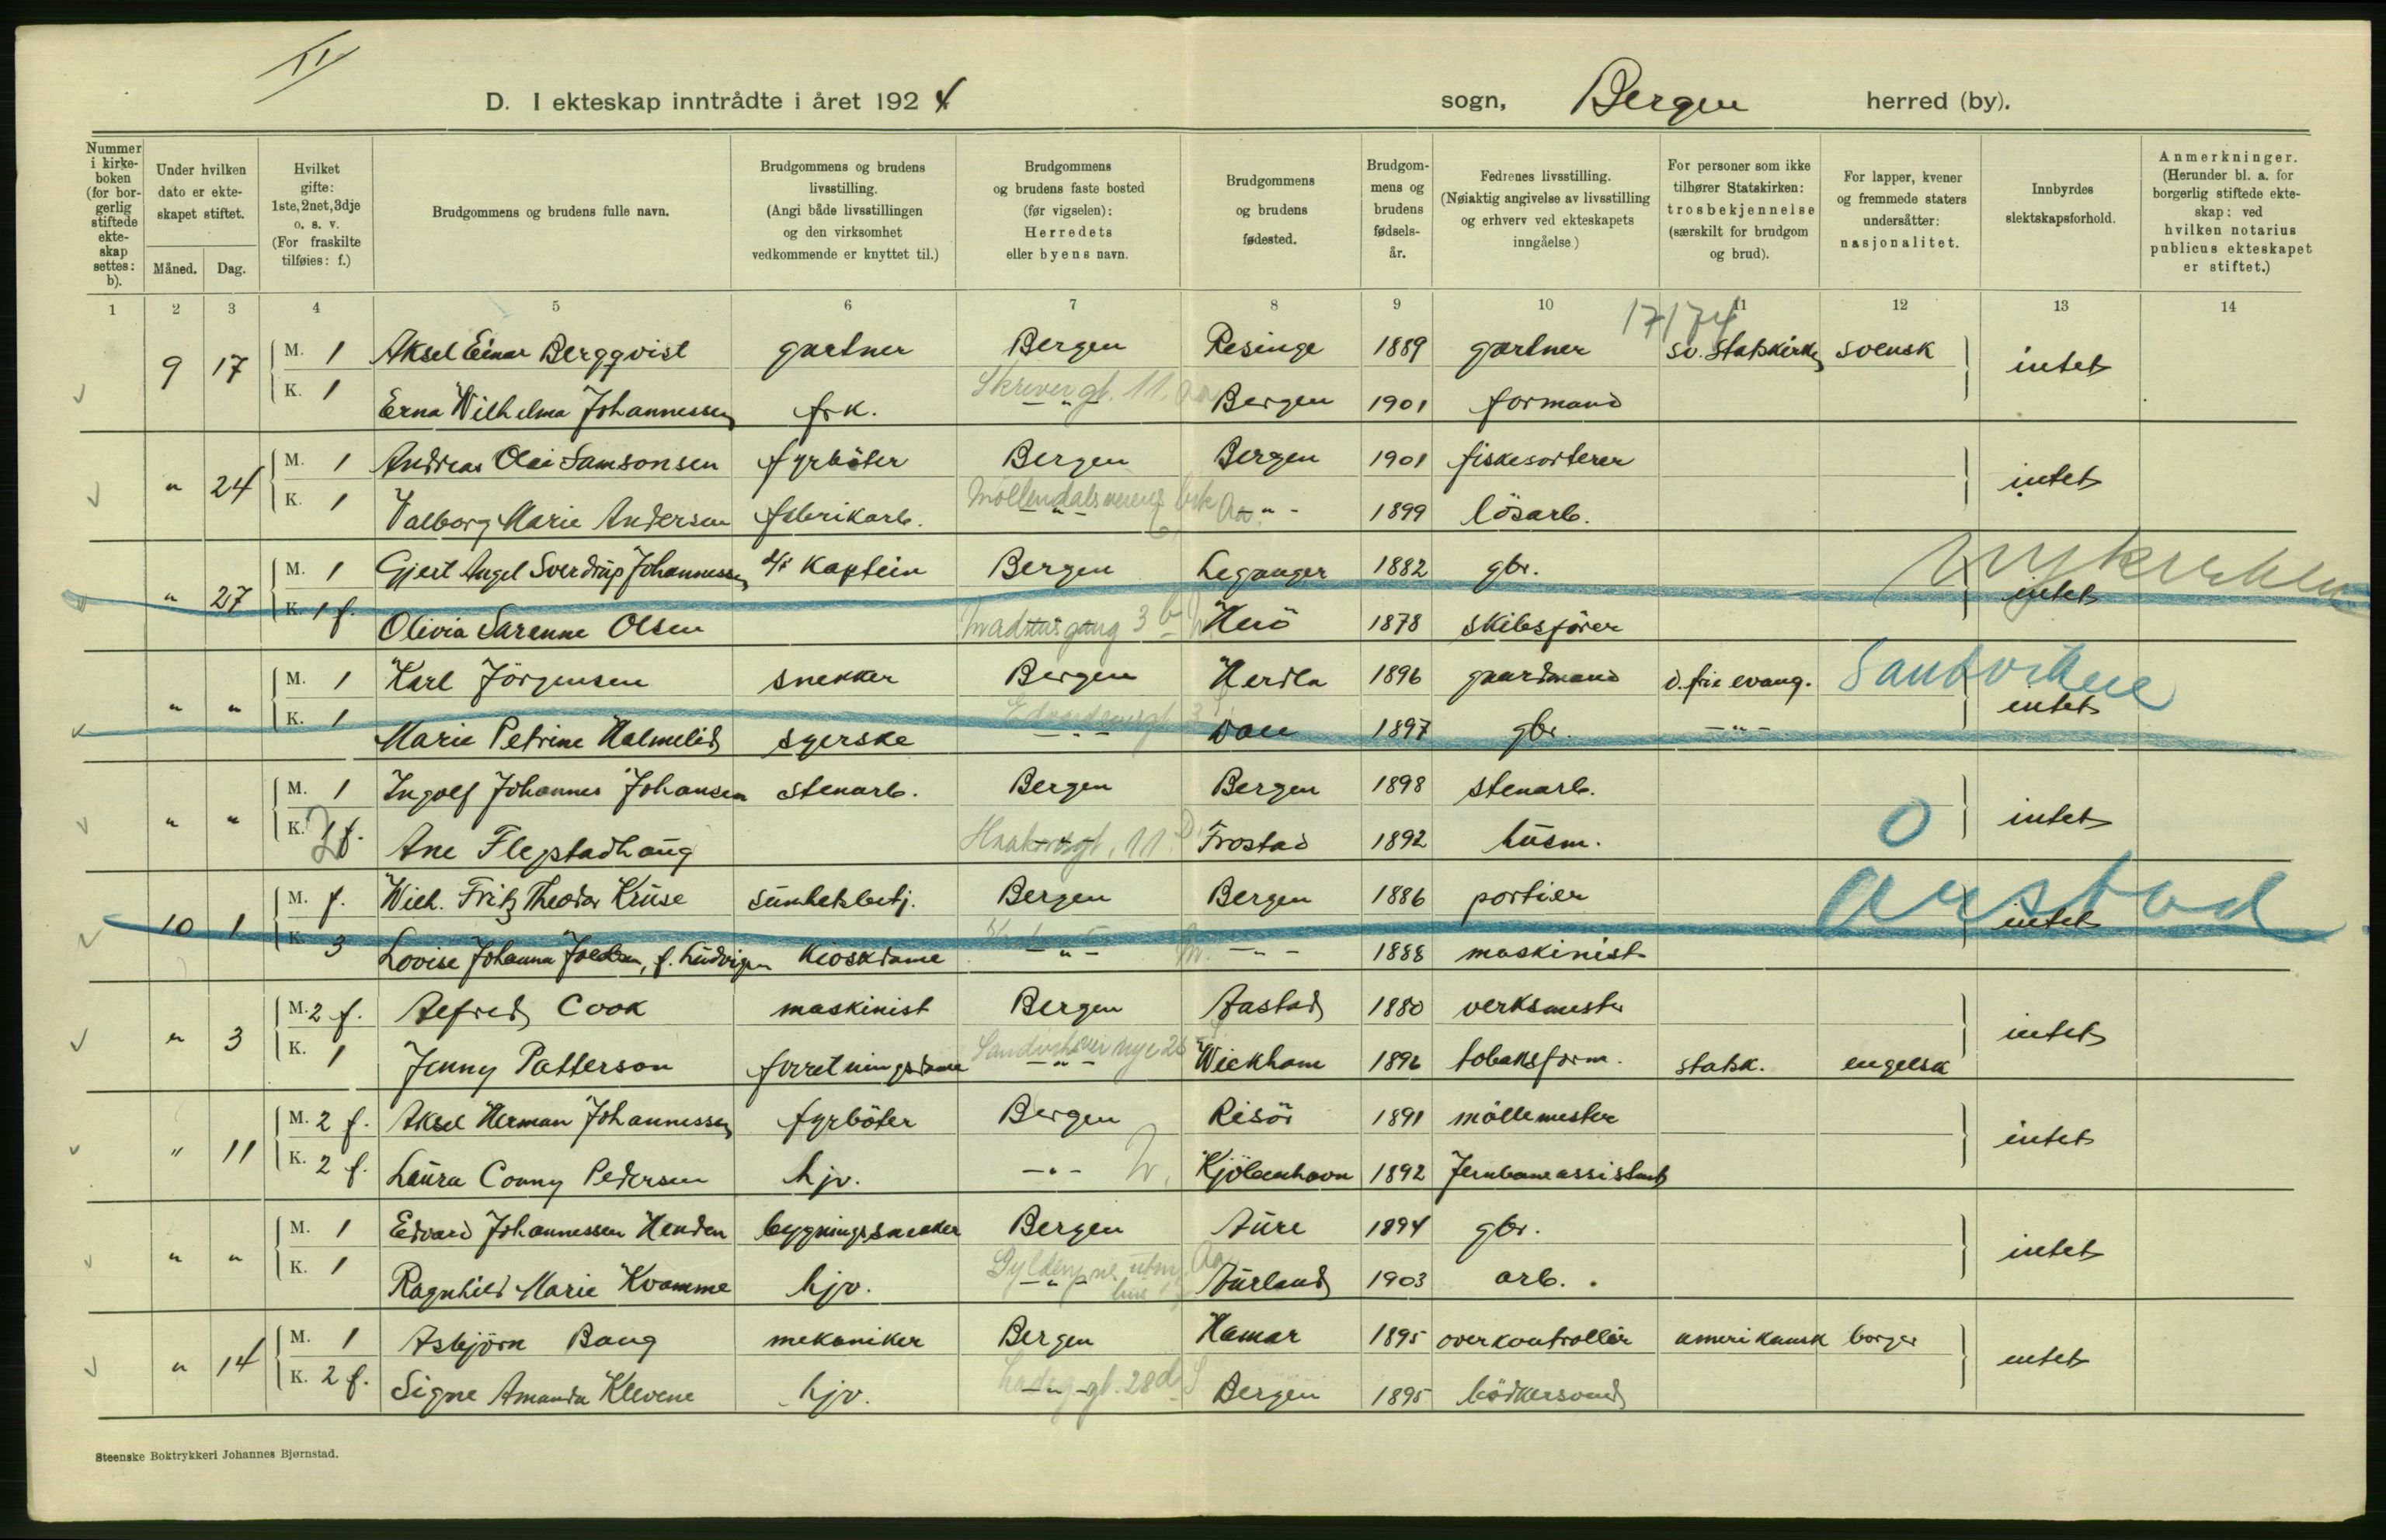 VI
D. I ekteskap inntrådte i året 1924 sogn, Bergen herred (by).
Nummer i kirkeboken (for borgerlig stiftede ekteskap settes: b).
Under hvilken dato er ekteskapet stiftet.
Måned. Dag.
Hvilket gifte: 1ste, 2net, 3dje o. s. v. (For fraskilte tilføies: f.)
Brudgommens og brudens fulle navn.
Brudgommens og brudens livsstilling. (Angi både livsstillingen og den virksomhet vedkommende er knyttet til.)
Brudgommens og brudens faste bosted (før vigselen): Herredets eller byens navn.
Brudgommens og brudens fødested.
Brudgommens og brudens fødselsår.
Fedrenes livsstilling. (Nøiaktig angivelse av livsstilling og erhverv ved ekteskapets inngåelse.)
For personer som ikke tilhører Statskirken: trosbekjennelse (særskilt for brudgom og brud).
For lapper, kvener og fremmede staters undersåtter: nasjonalitet.
Innbyrdes slektskapsforhold.
Anmerkninger. (Herunder bl. a. for borgerlig stiftede ekteskap: ved hvilken notarius publicus ekteskapet er stiftet.)
1 2 3 4 5 6 7 8 9 10 11 12 13 14
17174
9 17 M. 1 Aksel Einar Bergqvist gartner Bergen Resinge 1889 gartner sv. Statskirke svensk intet
K. 1 Erna Wilhelma Johannessen frk. -"- Skivergt. 11. Aa Bergen 1901 formand
" 24 M. 1 Andreas Olai Samsonsen fyrböter Bergen Bergen 1901 fiskesorterer intet
K. 1 Valborg Marie Andersen fabrikarb. -"- Möllendalsveiens Aa. -"- 1899 lösarb.
" 27 M. 1 Gjert Angel Sverdrup Johannessen d/s Kaptein Bergen Leganger 1882 gbr. intet Nykirken
K. 1 f. Olivia Sarenne Olsen gang 3 b Herö 1878 skibsförer
" " M. 1 Karl Jörgensen snekker Bergen Herdla 1896 gaardmand d. frie evang. intet Sandviken
K. 1 Marie Petrine Halmelid syerske -"- Dale 1897 gbr. -"-
" " M. 1 Ingolf Johannes Johansen stenarb. Bergen Bergen 1898 stenarb. O intet
K. 2 f. Ane Flegstadhaug Haakonsgt. 11. D. Frostad 1892 husm.
10 1 M. f. Wilh. Fritz Theodor Kruse sunhetsbetj. Bergen Bergen 1886 portier intet Årstad
K. 3 Lovise Johanna f. Ludvigsen Kioskdame -"- -"- 1888 maskinist
" 3 M. 2 f. Alfred Cook maskinist Bergen Aastad 1880 verksmester intet
K. 1 Jenny Patterson forretningsdame -"- Sandviksvei nye 26 Wickham 1896 tobaksform. statsk. engelsk
" 11 M. 2 f. Aksel Herman Johannessen fyrböter Bergen Risör 1891 möllemester intet
K. 2 f. Laura Conny Pedersen hjv. -"- Kjöbenhavn 1892 Jernbaneassistent
" " M. 1 Edvard Johannessen Henden bygningssnekker Bergen Aure 1894 gbr. intet
K. 1 Ragnhild Marie Kvamme hjv. -"- Aa Aurland 1903 arb.
" 14 M. 1 Asbjörn Bang mekaniker Bergen Hamar 1895 overkontrollör amerikansk borger intet
K. 2 f. Signe Amanda Klevene hjv. -"- gt. 28d S Bergen 1895 bödkersvend
Steenske Boktrykkeri Johannes Bjørnstad.